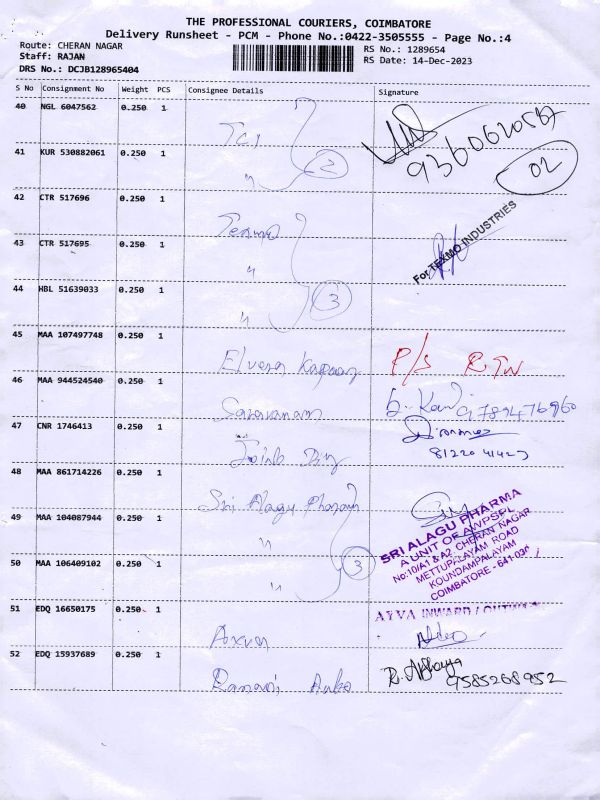 THE PROFESSIONAL COURIERS, COIMBATORE
Delivery Runsheet - PCM - Phone No.:0422-3505555 - Page No.:4
Route: CHERAN NAGAR
RS No.: 1289654
Staff: RAJAN
RS Date: 14-Dec-2023
DRS No.: DCJB128965404
S No Consignment No Weight PCS Consignee Details Signature
40 NGL 6047562 0.250 1
9360620587
41 KUR 530882061 0.250 1
2
02
42 CTR 517696 0.250 1
Texmo
For TEXMO INDUSTRIES
43 CTR 517695 0.250 1
"
44 HBL 51639033 0.250 1
3
"
45 MAA 107497748 0.250 1
P/S RTW
46 MAA 944524540 0.250 1
Saravanan
9789476960
47 CNR 1746413 0.250 1
81220 41423
48 MAA 861714226 0.250 1
Sri Alagu Pharma
49 MAA 104087944 0.250 1
"
SRI ALAGU PHARMA
A UNIT OF AWPSPL
No:10/A1 & A2, CHERAN NAGAR
METTUPALAYAM ROAD
KOUNDAMPALAYAM
COIMBATORE - 641 030
50 MAA 106409102 0.250 1
"
3
51 EDQ 16650175 0.250 1
AYVA INWARD /
52 EDQ 15937689 0.250 1
9585268952